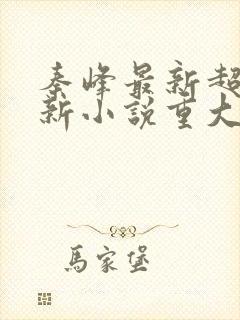 秦峰最新超
新小說重大
馬家堡